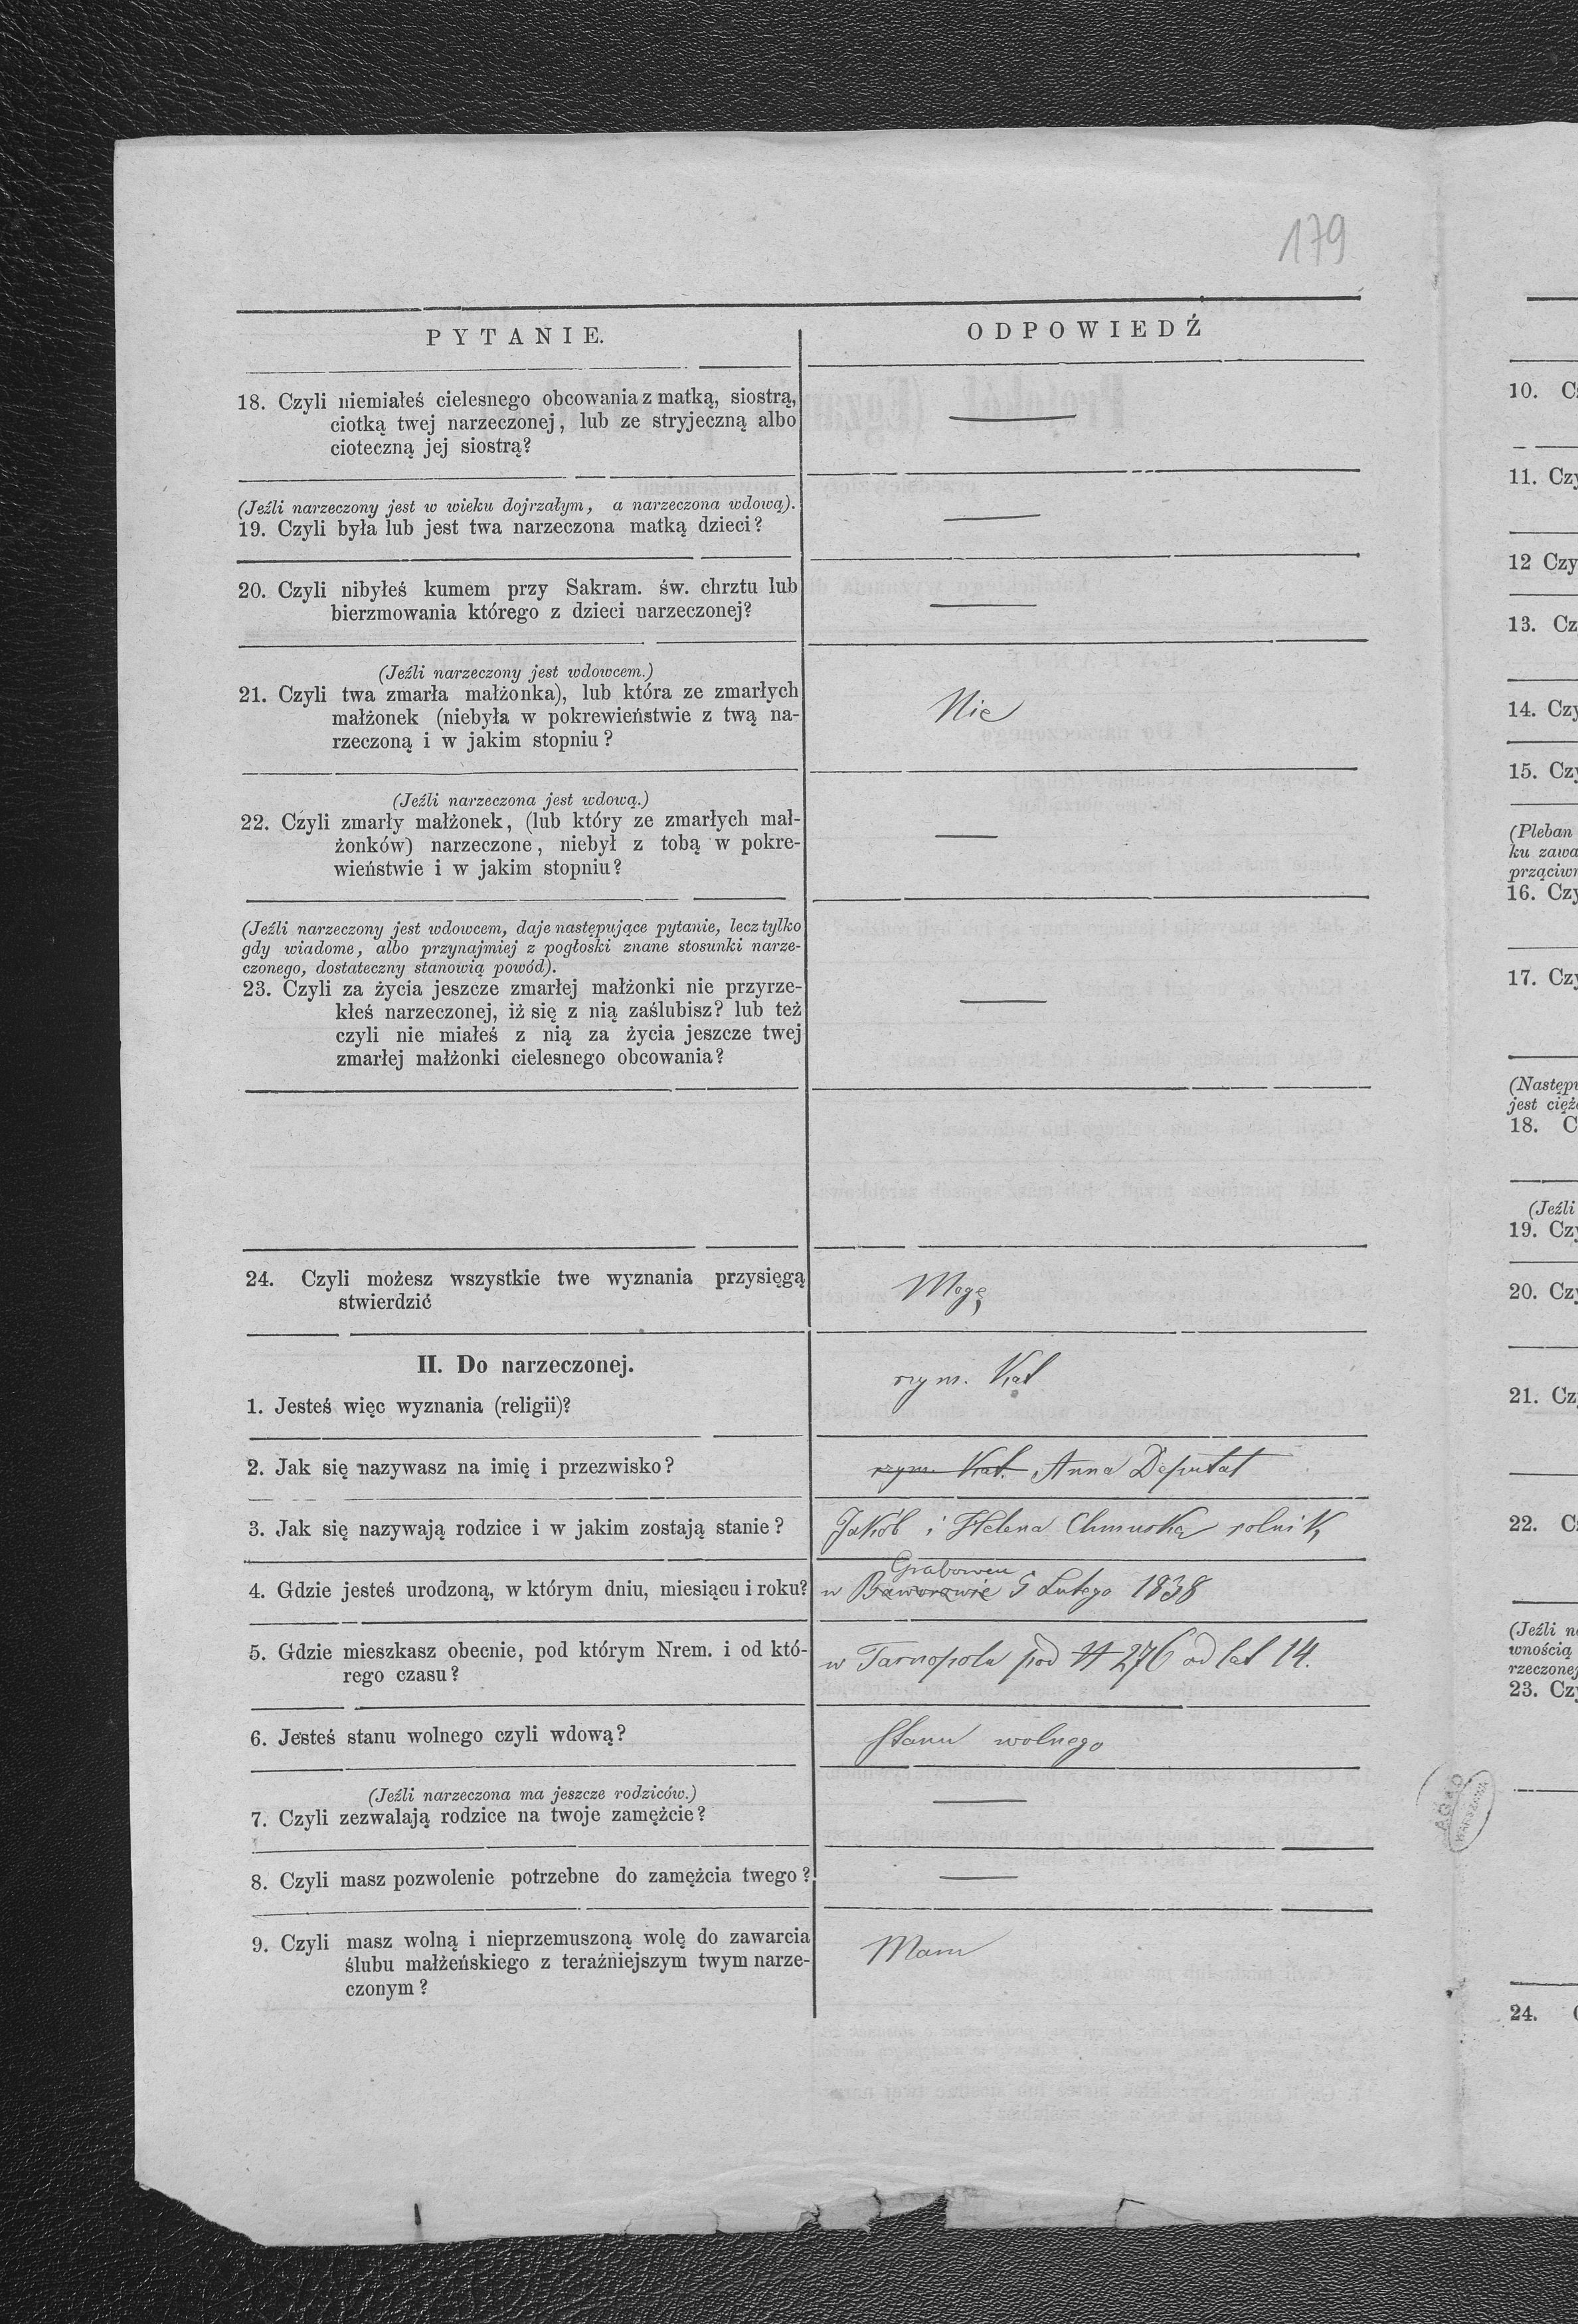 179
PYTANIE.
ODPOWIEDŹ
18. Czyli niemiałeś cielesnego obcowania z matką, siostrą,
ciotką twej narzeczonej, lub ze stryjeczną albo
cioteczną jej siostrą?
—
(Jeźli narzeczony jest w wieku dojrzałym, a narzeczona wdową).
19. Czyli była lub jest twa narzeczona matką dzieci?
—
20. Czyli nibyłeś kumem przy Sakram. św. chrztu lub
bierzmowania którego z dzieci narzeczonej?
—
(Jeźli narzeczony jest wdowcem.)
21. Czyli twa zmarła małżonka), lub która ze zmarłych
małżonek (niebyła w pokrewieństwie z twą na-
rzeczoną i w jakim stopniu?
Nie
(Jeźli narzeczona jest wdową.)
22. Czyli zmarły małżonek, (lub który ze zmarłych mał-
żonków) narzeczone, niebył z tobą w pokre-
wieństwie i w jakim stopniu?
—
(Jeźli narzeczony jest wdowcem, daje następujące pytanie, lecz tylko
gdy wiadome, albo przynajmiej z pogłoski znane stosunki narze-
czonego, dostateczny stanowią powód).
23. Czyli za życia jeszcze zmarłej małżonki nie przyrze-
kłeś narzeczonej, iż się z nią zaślubisz? lub też
czyli nie miałeś z nią za życia jeszcze twej
zmarłej małżonki cielesnego obcowania?
—
24. Czyli możesz wszystkie twe wyznania przysięgą
stwierdzić
Mogę
II. Do narzeczonej.
1. Jesteś więc wyznania (religii)?
rzym. Kat
2. Jak się nazywasz na imię i przezwisko?
rzym. Kat. Anna Deputat
3. Jak się nazywają rodzice i w jakim zostają stanie?
Jakób i Helena Chmurka rolnik
4. Gdzie jesteś urodzoną, w którym dniu, miesiącu i roku?
Grabowcu
w Baworowie 5 Lutego 1838
5. Gdzie mieszkasz obecnie, pod którym Nrem. i od któ-
rego czasu?
w Tarnopolu pod N 276 od lat 14.
6. Jesteś stanu wolnego czyli wdową?
Stanu wolnego
(Jeźli narzeczona ma jeszcze rodziców.)
7. Czyli zezwalają rodzice na twoje zamężcie?
—
8. Czyli masz pozwolenie potrzebne do zamężcia twego?
—
9. Czyli masz wolną i nieprzemuszoną wolę do zawarcia
ślubu małżeńskiego z teraźniejszym twym narze-
czonym?
Mam
10. C
11. Czy
12 Czy
13. Cz
14. Czy
15. Czy
(Pleban
ku zawa
prząciwn
16. Czy
17. Czy
(Następu
jest cięż
18. C
(Jeźli
19. Czy
20. Czy
21. Cz
22. C
(Jeźli n
wnością
rzeczonej
23. Czy
AGAD
WARSZAWA
24.